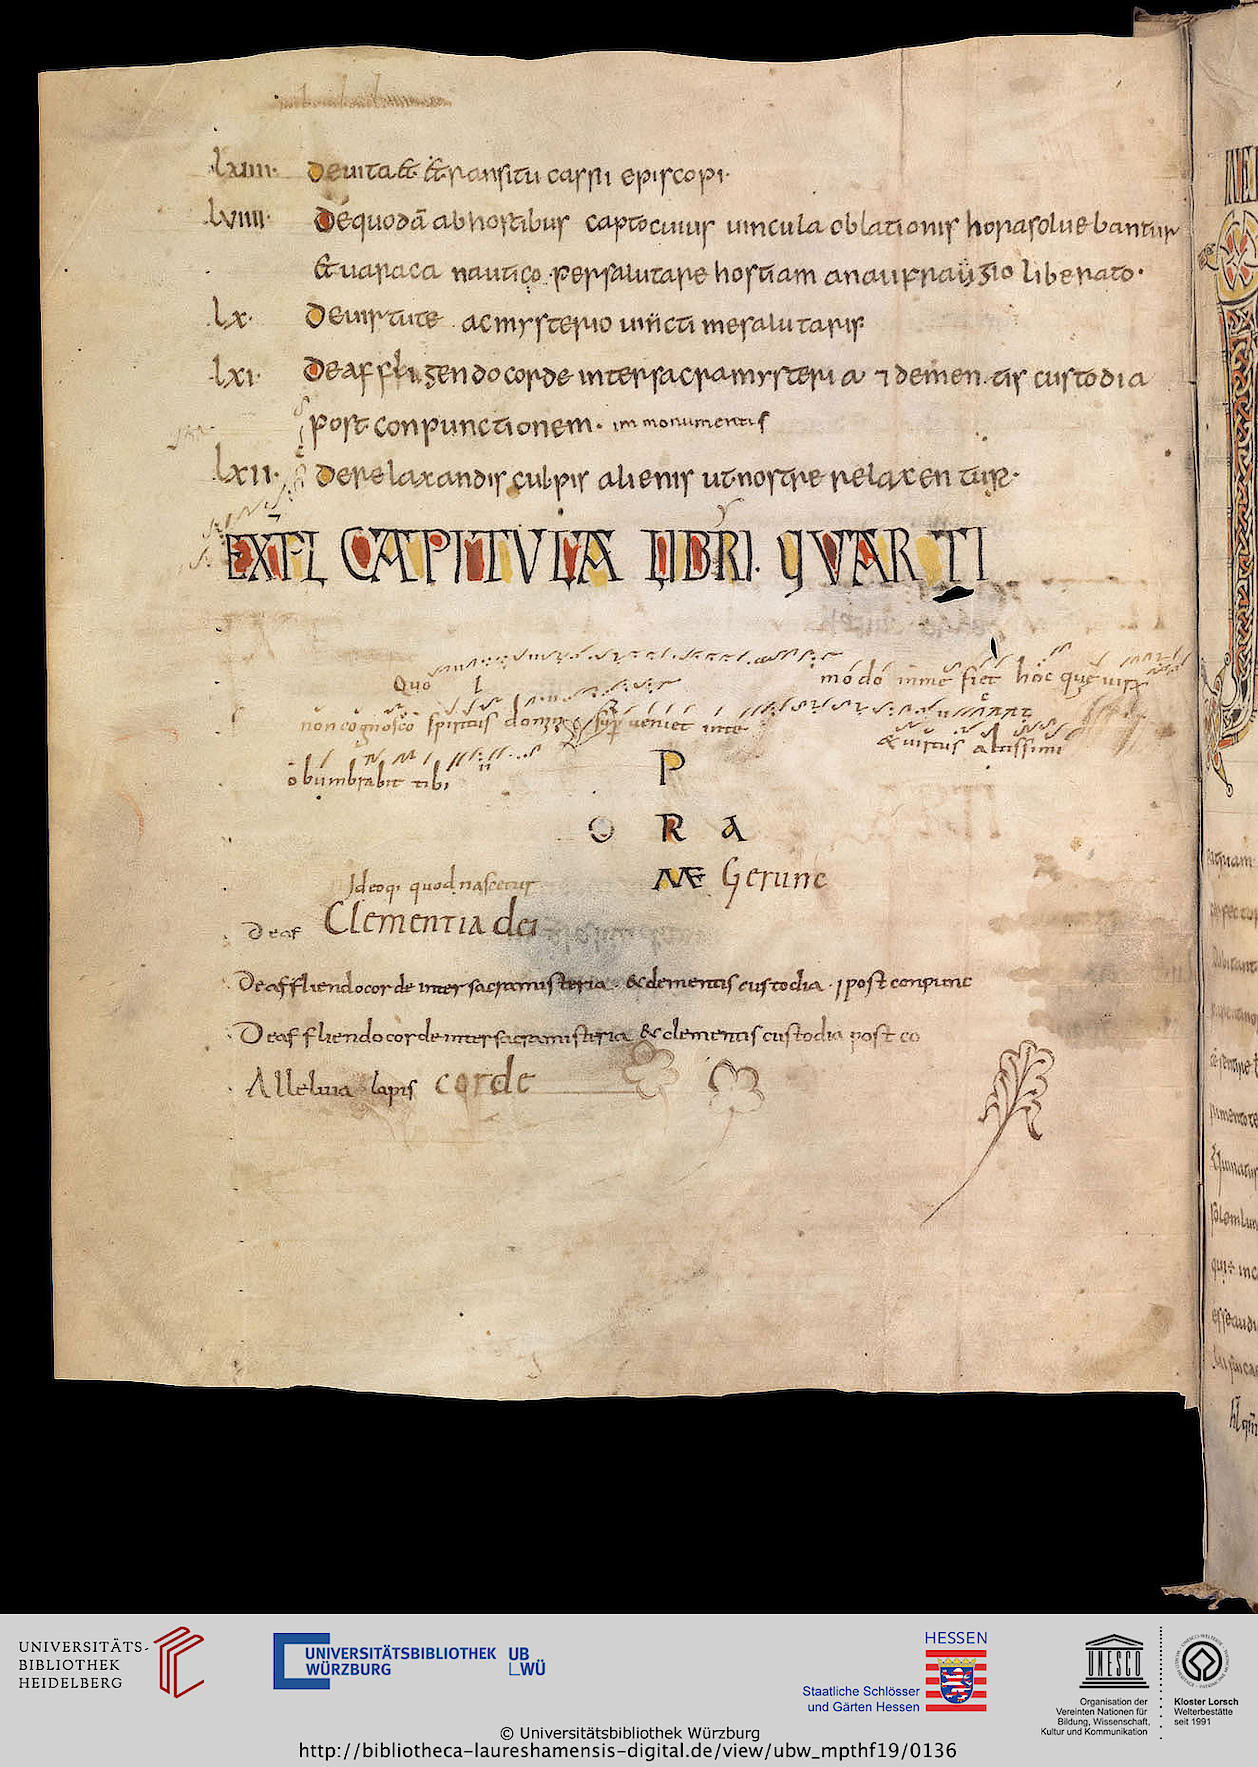 lxiiii. De vita et et transitu cassii episcopi.
lviiii. De quodā ab hostibus capto cuius uincula oblationis hora soluebantur
et uaraca nautico per salutare hostiam a naufraugio liberato.
lx. De uirtute ac mysterio uincti me salutaris
lxi. De affligendo corde inter sacra mysteria ⁊ de mentis custodia
post conpunctionem. im monumentis
lxii. De relaxandis culpis alienis ut nostre relaxentur.
EXPL CAPITULA LIBRI QVARTI
Quo modo in me fiet hoc que uir
non cognosco spiritus domini sup ueniet in te
& uirtus altissimi
obumbrabit tibi
P
O R A
ME Gerunc
Ideoq. quod nascetur
Deaf Clementia dei
De affliendo corde inter sacra misteria . & de mentis custodia . post conpunc
De affliendo corde inter sacra misteria & de mentis custodia post co
Alleluia lapis corde
UNIVERSITÄTS-
BIBLIOTHEK
HEIDELBERG
UNIVERSITÄTSBIBLIOTHEK
WÜRZBURG
UB
WÜ
HESSEN
Staatliche Schlösser
und Gärten Hessen
UNESCO
Organisation der
Vereinten Nationen für
Bildung, Wissenschaft,
Kultur und Kommunikation
Kloster Lorsch
Welterbestätte
seit 1991
© Universitätsbibliothek Würzburg
http://bibliotheca-laureshamensis-digital.de/view/ubw_mpthf19/0136